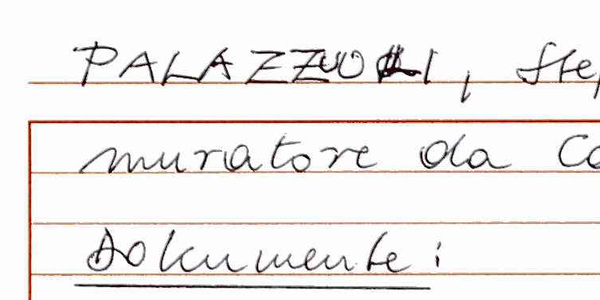 PALAZZOLI, Step
muratore da Co
Dokumente: